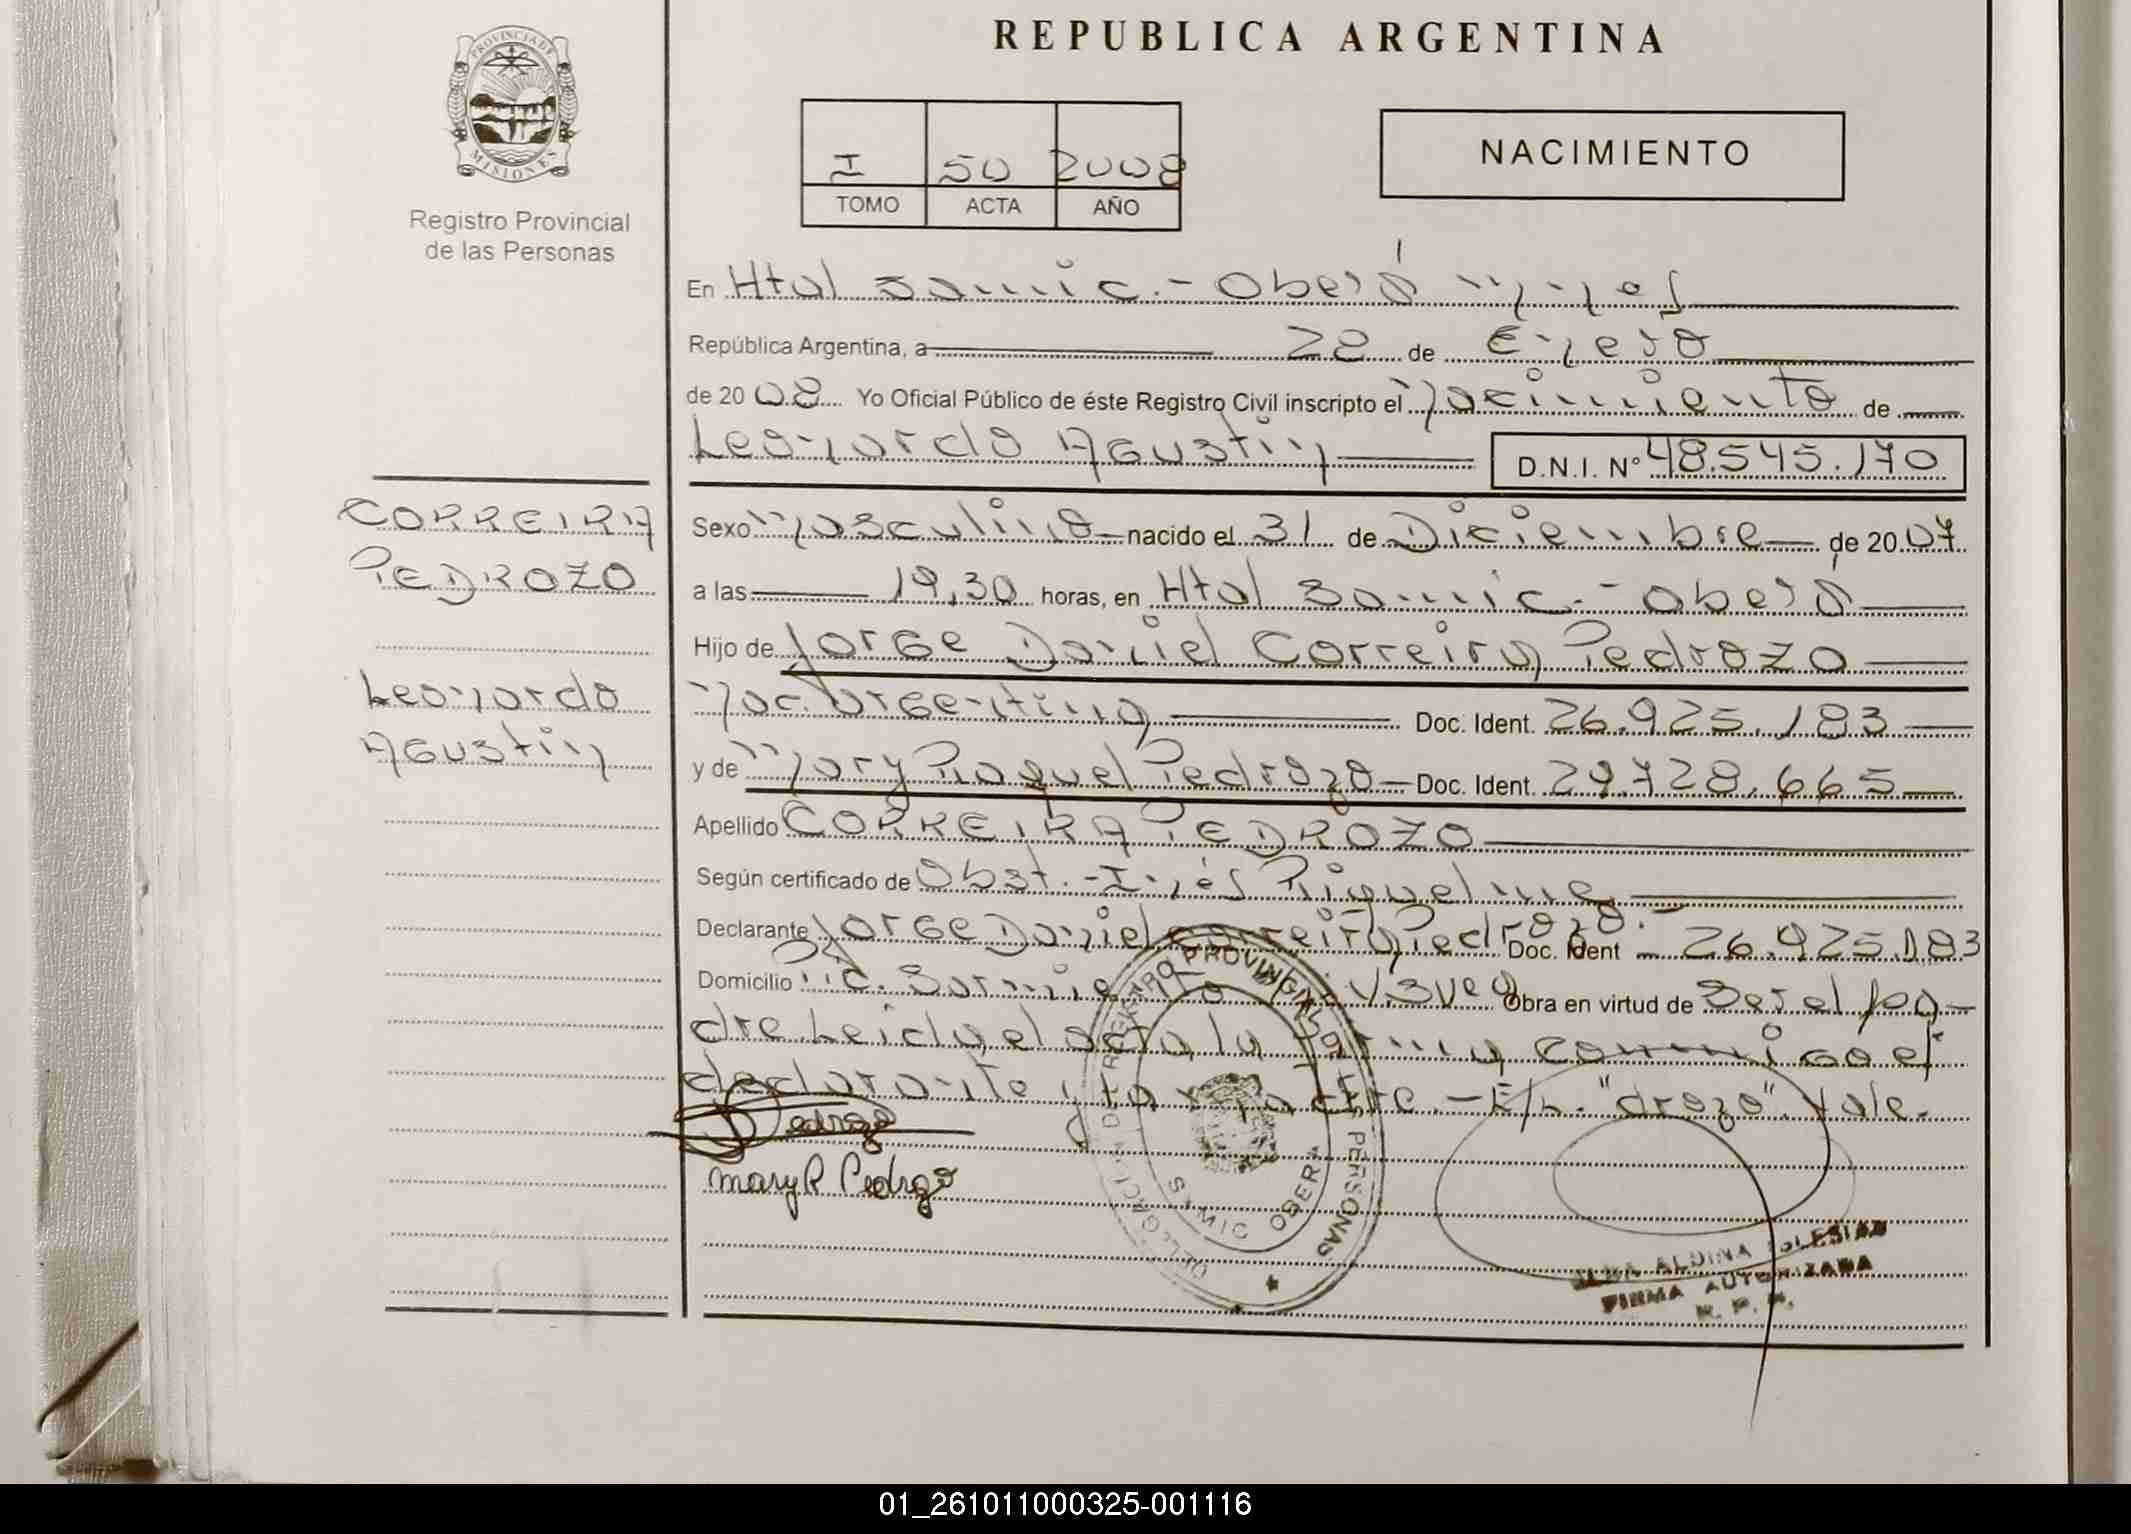 REPUBLICA ARGENTINA
PROVINCIA DE
MISIONES
Registro Provincial
de las Personas
I 50 2008
TOMO ACTA AÑO
NACIMIENTO
En Htal Samic.- Oberá Mnes
República Argentina, a 28 de Enero
de 2008 Yo Oficial Público de éste Registro Civil inscripto el Nacimiento de
Leonardo Agustin D.N.I. Nº 48.545.170
CORREIRA
PEDROZO
Leonardo
Agustin
Sexo Masculino nacido el 31 de Diciembre de 2007
a las 19,30 horas, en Htal Samic.- Oberá
Hijo de Jorge Daniel Correira Pedrozo
Nac. argentina Doc. Ident. 26.925.183
y de Mary Raquel Pedrozo Doc. Ident. 29.728.665
Apellido CORREIRA PEDROZO
Según certificado de Obst.- Inés Riquelme
Declarante Jorge Daniel Correira Pedrozo.- Doc. Ident 26.925.183
Domicilio Sarmiento Obra en virtud de Ser el pa-
dre. Leida el acta la firma conmigo el
declarante y la madre.- E/L. "drozo". Vale.
Pedrozo
Mary R Pedrozo
REGISTRO PROVINCIAL DE LAS PERSONAS
DELEGACION
SAMIC OBERA
ALDINA IGLESIAS
FIRMA AUTORIZADA
R. P. P.
01_261011000325-001116